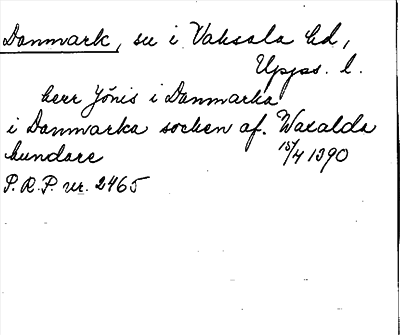 Danmark, su i Vaksala hd,
Upps. l.
herr Jönis i Danmarka
i Danmarka socken af. Waxalda
hundare 15/4 1390
P.R.P. nr. 2465